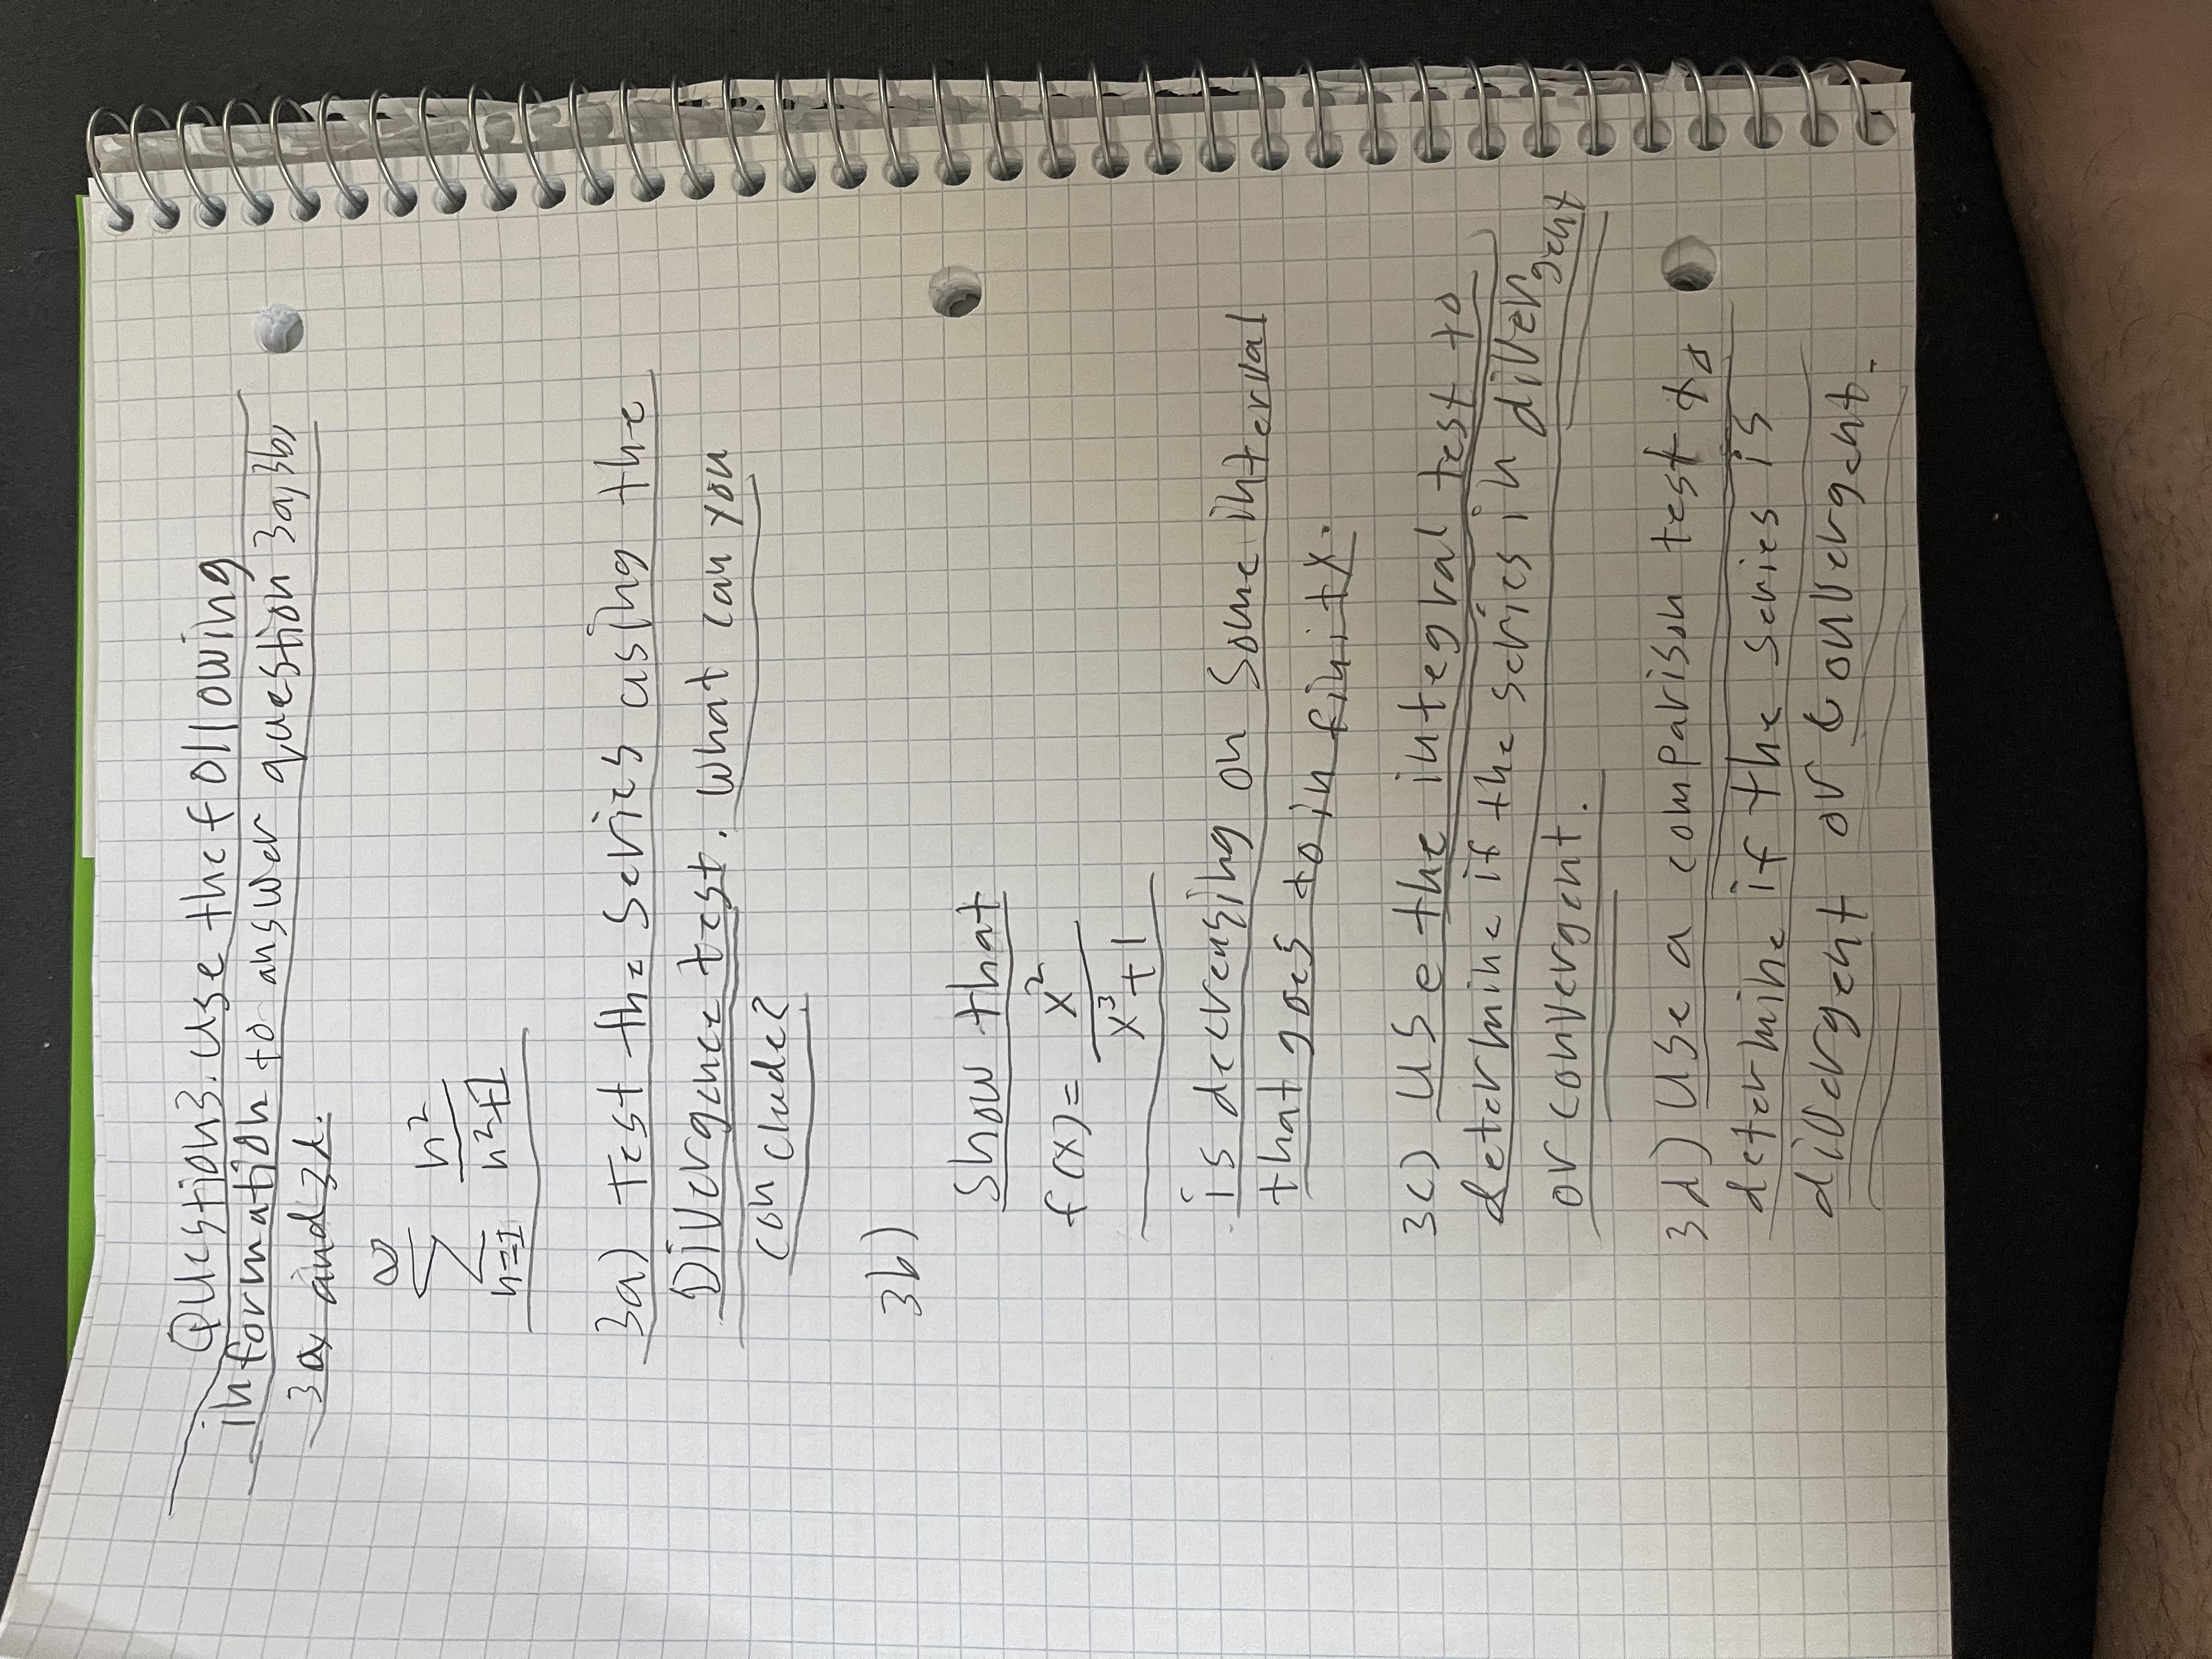 Question 3. Use the following
information to answer question 3a, 3b,
3a, and 3d.
∞
∑ n²/(n²+1)
n=1
3a) Test the series using the
Divergence test. What can you
conclude?
3b)
Show that
f(x)= x²/(x³+1)
is decreasing on some interval
that goes to infinity.
3c) Use the integral test to
determine if the series in divergent
or convergent.
3d) Use a comparison test to
determine if the series is
divergent or convergent.